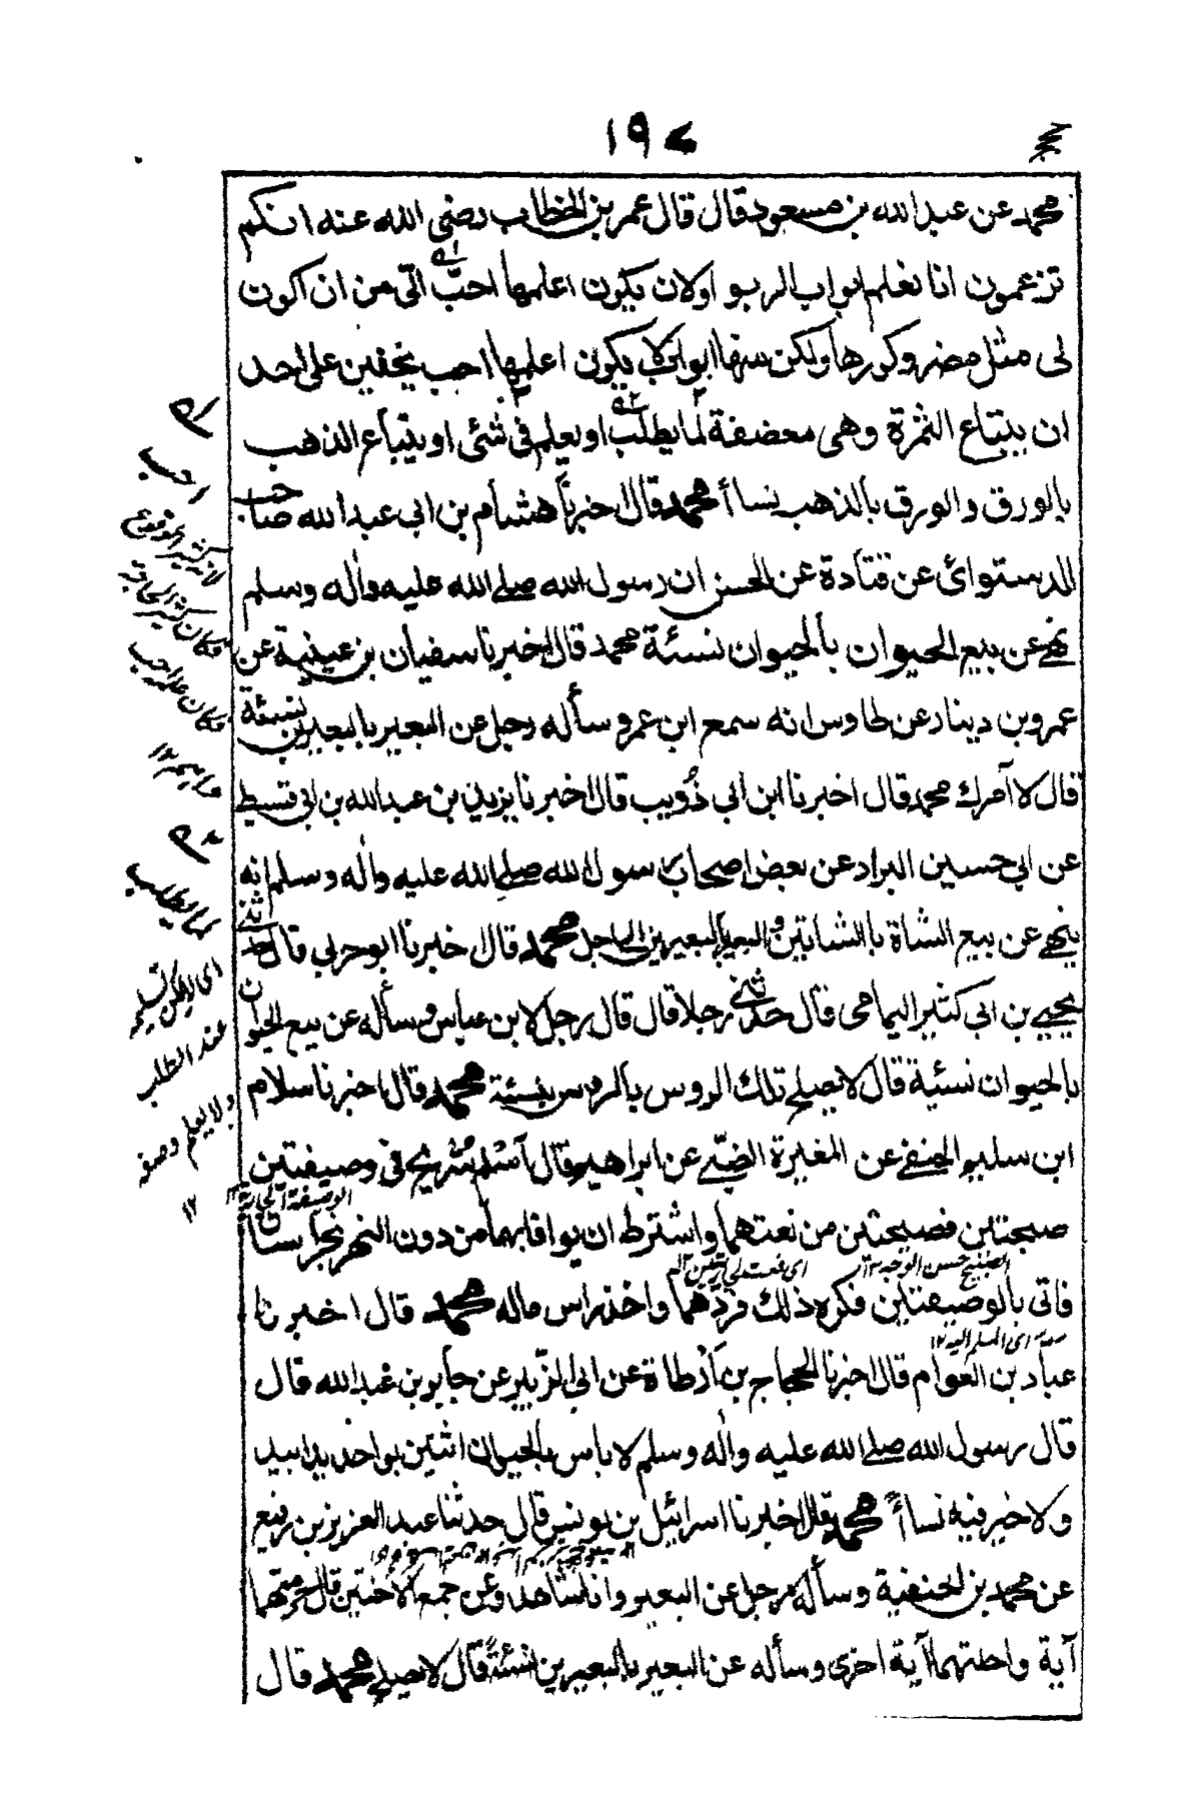 ١٩٧
محمد عن عبد الله بن مسعود قال قال عمر بن الخطاب رضى الله عنه انكم
تزعمون انا نعلم ابواب الربو او لان يكون اعلمها احبّ الّى من ان اكون
لى مثل مضر وكورها ولكن سنها ابواب لا يكون اعلمها احب يخفين على احد
ان يبتاع الثمرة وهى معضفة لما يطلب او يعلم فى شئى او يبتاع الذهب
بالورق والورق بالذهب نسأ أ محمد قال اخبرنا هشام بن ابى عبد الله صاحب
الدستوائ عن قتادة عن الحسن ان رسول الله صلے الله عليه واٰله وسلم
نهے عن بيع الحيوان بالحيوان نسئة محمد قال اخبرنا سفيان بن عيينة عن
عمرو بن دينار عن طاوس انه سمع ابن عمر وسأله رجل عن البعير بالبعيرين نسئة
قال لا آمرك محمد قال اخبرنا ابن ابى ذُويب قال اخبرنا يزيد بن عبد الله بن ابى قسيط
عن ابى حسين البراد عن بعض اصحاب رسول الله صلے الله عليه واٰله وسلم انه
ينهے عن بيع الشاة بالشاتين والبعير بالبعيرين الى اجل محمد قال اخبرنا ابو حربى قال حدثنے
يحيے بن ابى كثير اليمامى قال حدثنے رجلا قال قال رجل لابن عباس وسأله عن بيع الحيوان
بالحيوان نسئية قال لا يصلح تلك الروس بالروس بنسئة محمد قال اخبرنا سلام
ابن سليم الحنفے عن المغيرة الضبّے عن ابراهيم قال اسلم شريح فى وصيفتين
الوصيفة الجارية ١٢
صبيحتين فصيحتين من نعتهما واشترط ان يوافا بهما من دون النهر بخراسان
الصبيح حسن الوجه ١٢
فاتى بالوصيفتين فكره ذلك فردهما واخذ راس ماله محمد قال اخبرنا
اى المسلم اليه ١٢
عباد بن العوام قال اخبرنا الحجاج بن اَرْطاة عن ابى الزّبير عن جابر بن عبد الله قال
قال رسول الله صلے الله عليه واٰله وسلم لا باس بالحيوان اثنين بواحد يدا بيد
ولا خير فيه نسأ أً محمد قال اخبرنا اسرائيل بن يونس قال حدثنا عبد العزيز بن رفيع
عن محمد بن الحنفية وسأله رجل عن البعير وانا شاهد وعن جمع الاختين قال حرمتهما
آية واحلتهما آية اخرى وسأله عن البعير بالبعيرين نسئةً قال لا يصلح محمد قال
احب
لانه كثير الوقوع
فكان
فكان علمه احب
١٢
لما يطلب
اى لا يمكن تسليمه
عند الطلب
ولا يعلم وصفه
١٢